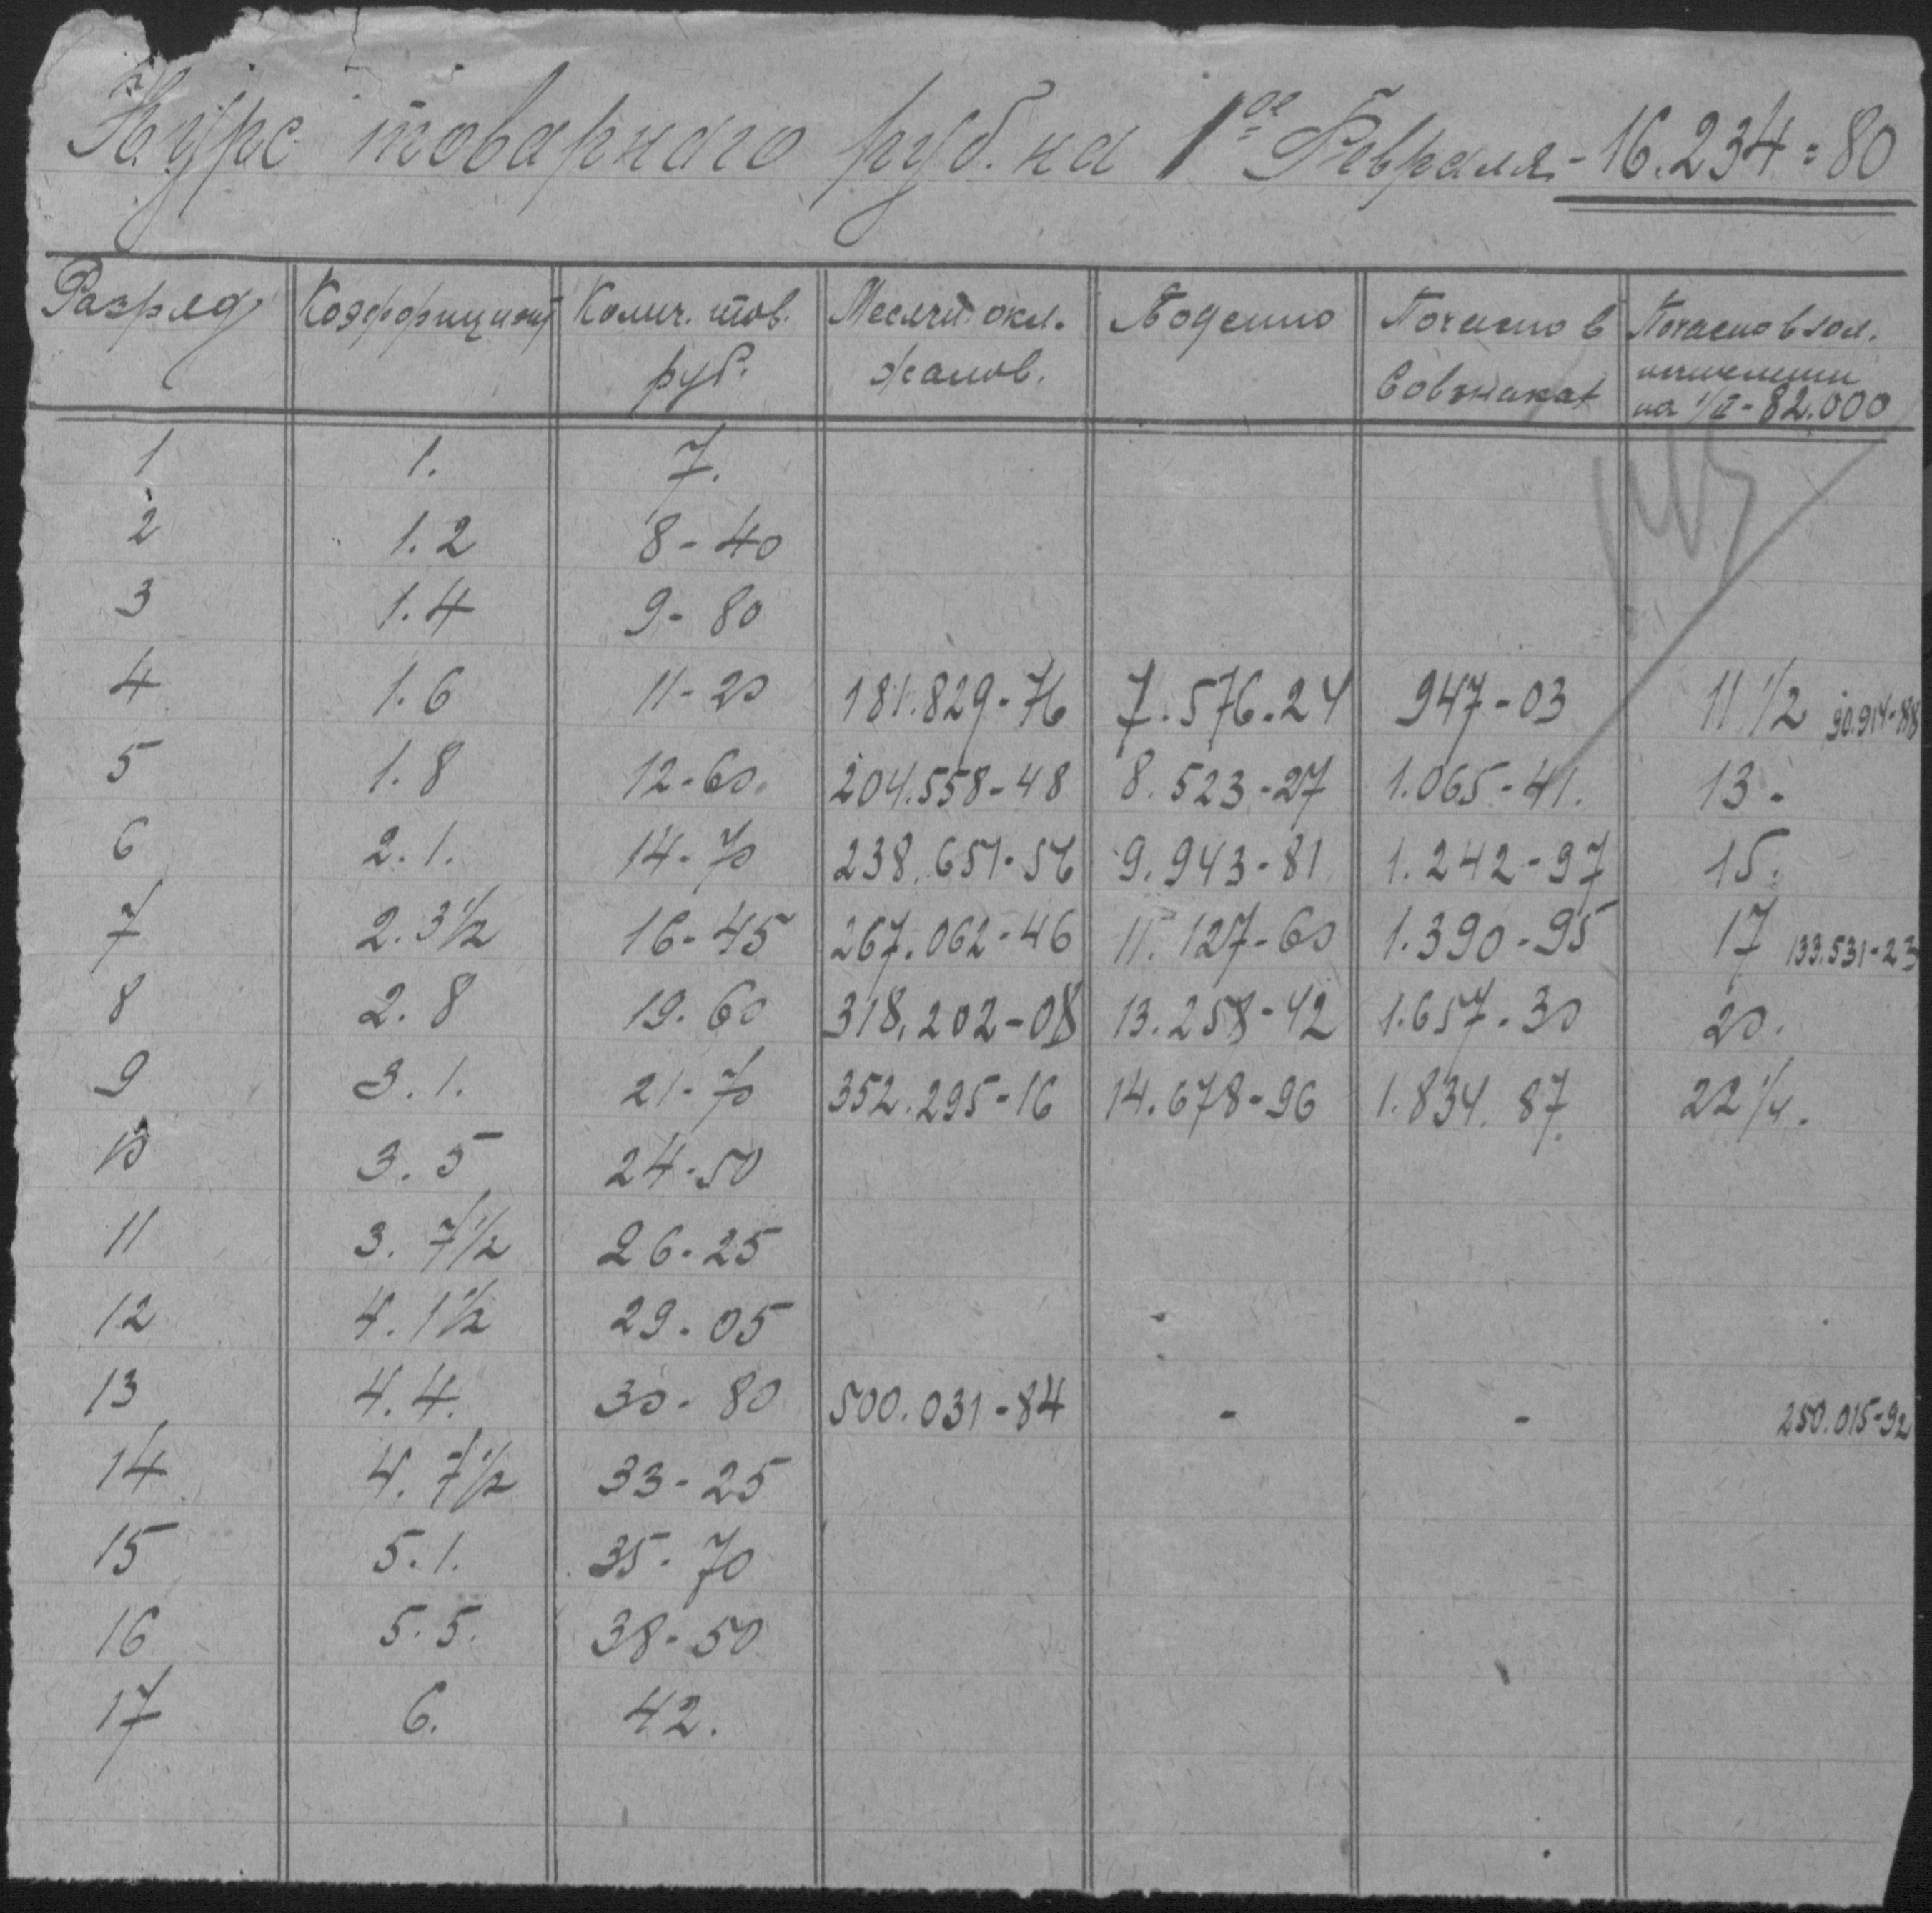 Курс товарнаго руб. на 1ое Февраля - 16.234=80
Разряд Коэффициент Колич. тов. руб. Месячн. окл. жалов. Поденно Почасно в Совзнаках Почасно в зол. исчислении на 1/II - 82.000
1 1. 7.
2 1.2 8-40
3 1.4 9-80
4 1.6 11-20 181.829-76 7.576.24 947-03 11 1/2 90.914-88
5 1.8 12-60. 204.558-48 8.523-27 1.065-41. 13-
6 2.1. 14-70 238.651-56 9.943-81 1.242-97 15.
7 2.3½ 16-45 267.062-46 11.127-60 1.390-95 17 133.531-23
8 2.8 19.60 318.202-08 13.258-42 1.657.30 20.
9 3.1. 21-70 352.295-16 14.678-96 1.834.87 22¼.
10 3.5 24-50
11 3.7½ 26-25
12 4.1½ 29.05
13 4.4. 30-80 500.031-84 - - 250.015-92
14 4.7½ 33-25
15 5.1. 35.70
16 5.5. 38-50
17 6. 42.